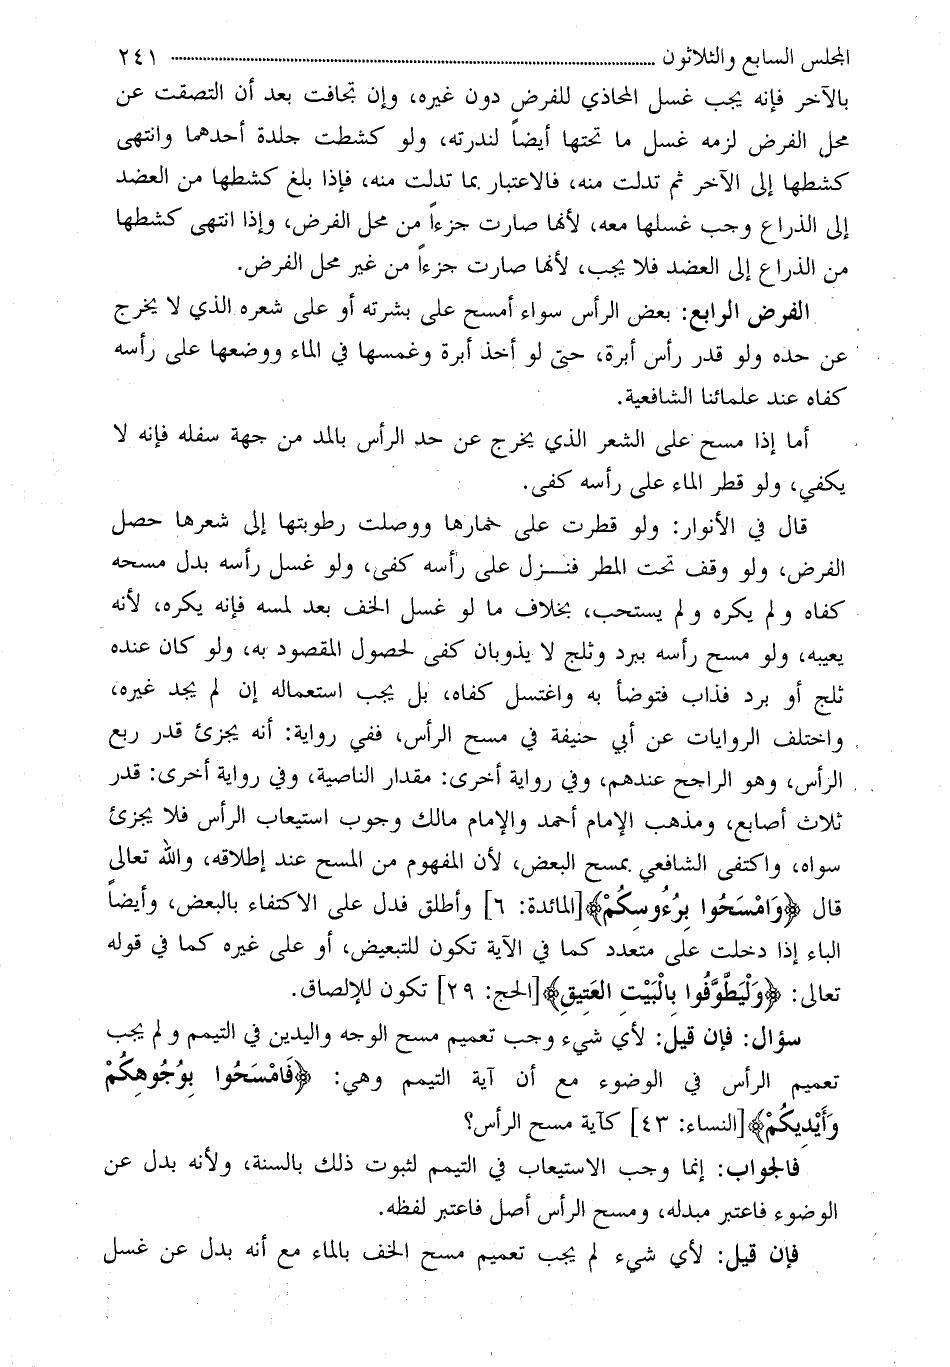 المجلس السابع والثلاثون ................................................ ٢٤١
بالآخر فإنه يجب غسل المحاذي للفرض دون غيره، وإن تجافت بعد أن التصقت عن
محل الفرض لزمه غسل ما تحتها أيضاً لندرته، ولو كشطت جلدة أحدهما وانتهى
كشطها إلى الآخر ثم تدلت منه، فالاعتبار بما تدلت منه، فإذا بلغ كشطها من العضد
إلى الذراع وجب غسلها معه، لأنها صارت جزءاً من محل الفرض، وإذا انتهى كشطها
من الذراع إلى العضد فلا يجب، لأنها صارت جزءاً من غير محل الفرض.
الفرض الرابع: بعض الرأس سواء أمسح على بشرته أو على شعره الذي لا يخرج
عن حده ولو قدر رأس أبرة، حتى لو أخذ أبرة وغمسها في الماء ووضعها على رأسه
كفاه عند علمائنا الشافعية.
أما إذا مسح على الشعر الذي يخرج عن حد الرأس بالمد من جهة سفله فإنه لا
يكفي، ولو قطر الماء على رأسه كفى.
قال في الأنوار: ولو قطرت على خمارها ووصلت رطوبتها إلى شعرها حصل
الفرض، ولو وقف تحت المطر فنـزل على رأسه كفى، ولو غسل رأسه بدل مسحه
كفاه ولم يكره ولم يستحب، بخلاف ما لو غسل الخف بعد لمسه فإنه يكره، لأنه
يعيبه، ولو مسح رأسه ببرد وثلج لا يذوبان كفى لحصول المقصود به، ولو كان عنده
ثلج أو برد فذاب فتوضأ به واغتسل كفاه، بل يجب استعماله إن لم يجد غيره،
واختلف الروايات عن أبي حنيفة في مسح الرأس، ففي رواية: أنه يجزئ قدر ربع
الرأس، وهو الراجح عندهم، وفي رواية أخرى: مقدار الناصية، وفي رواية أخرى: قدر
ثلاث أصابع، ومذهب الإمام أحمد والإمام مالك وجوب استيعاب الرأس فلا يجزئ
سواه، واكتفى الشافعي بمسح البعض، لأن المفهوم من المسح عند إطلاقه، والله تعالى
قال ﴿وَامْسَحُوا بِرُءُوسِكُمْ﴾[المائدة: ٦] وأطلق فدل على الاكتفاء بالبعض، وأيضاً
الباء إذا دخلت على متعدد كما في الآية تكون للتبعيض، أو على غيره كما في قوله
تعالى: ﴿وَلْيَطَّوَّفُوا بِالْبَيْتِ العَتِيقِ﴾[الحج: ٢٩] تكون للإلصاق.
سؤال: فإن قيل: لأي شيء وجب تعميم مسح الوجه واليدين في التيمم ولم يجب
تعميم الرأس في الوضوء مع أن آية التيمم وهي: ﴿فَامْسَحُوا بِوُجُوهِكُمْ
وَأَيْدِيكُمْ﴾[النساء: ٤٣] كآية مسح الرأس؟
فالجواب: إنما وجب الاستيعاب في التيمم لثبوت ذلك بالسنة، ولأنه بدل عن
الوضوء فاعتبر مبدله، ومسح الرأس أصل فاعتبر لفظه.
فإن قيل: لأي شيء لم يجب تعميم مسح الخف بالماء مع أنه بدل عن غسل